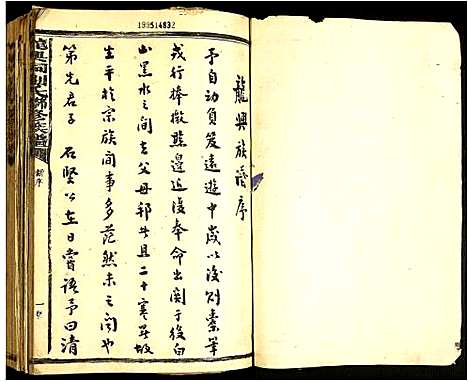 199514832
龍興族譜序
予自幼負笈遠遊中歲以後則橐筆
戎行奉檄熊邊近復奉命出關于役白
山黑水之間去父母邦廿且二十寒暑故
生平於宗族間事多茫然未之聞也
第先君子石堅公在日嘗語予曰清